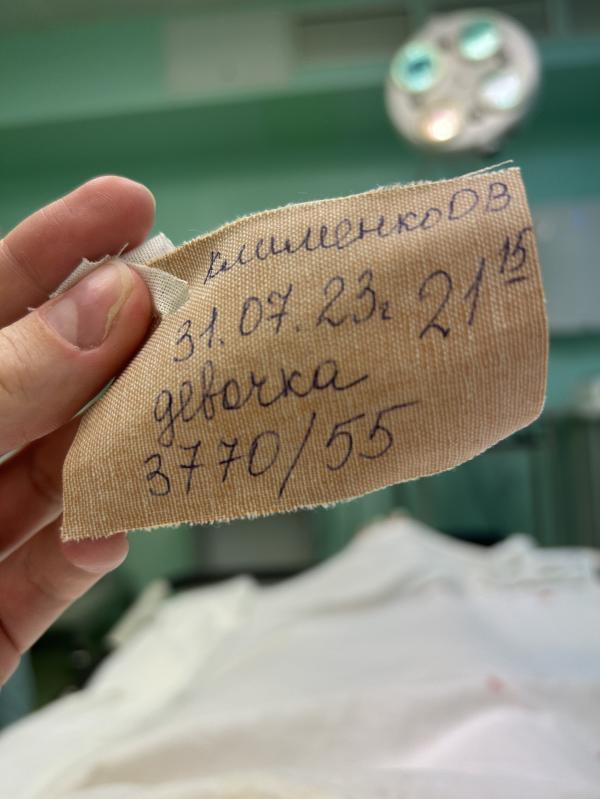 Клименко ДВ
31.07.23г 21 15
девочка
3770/55